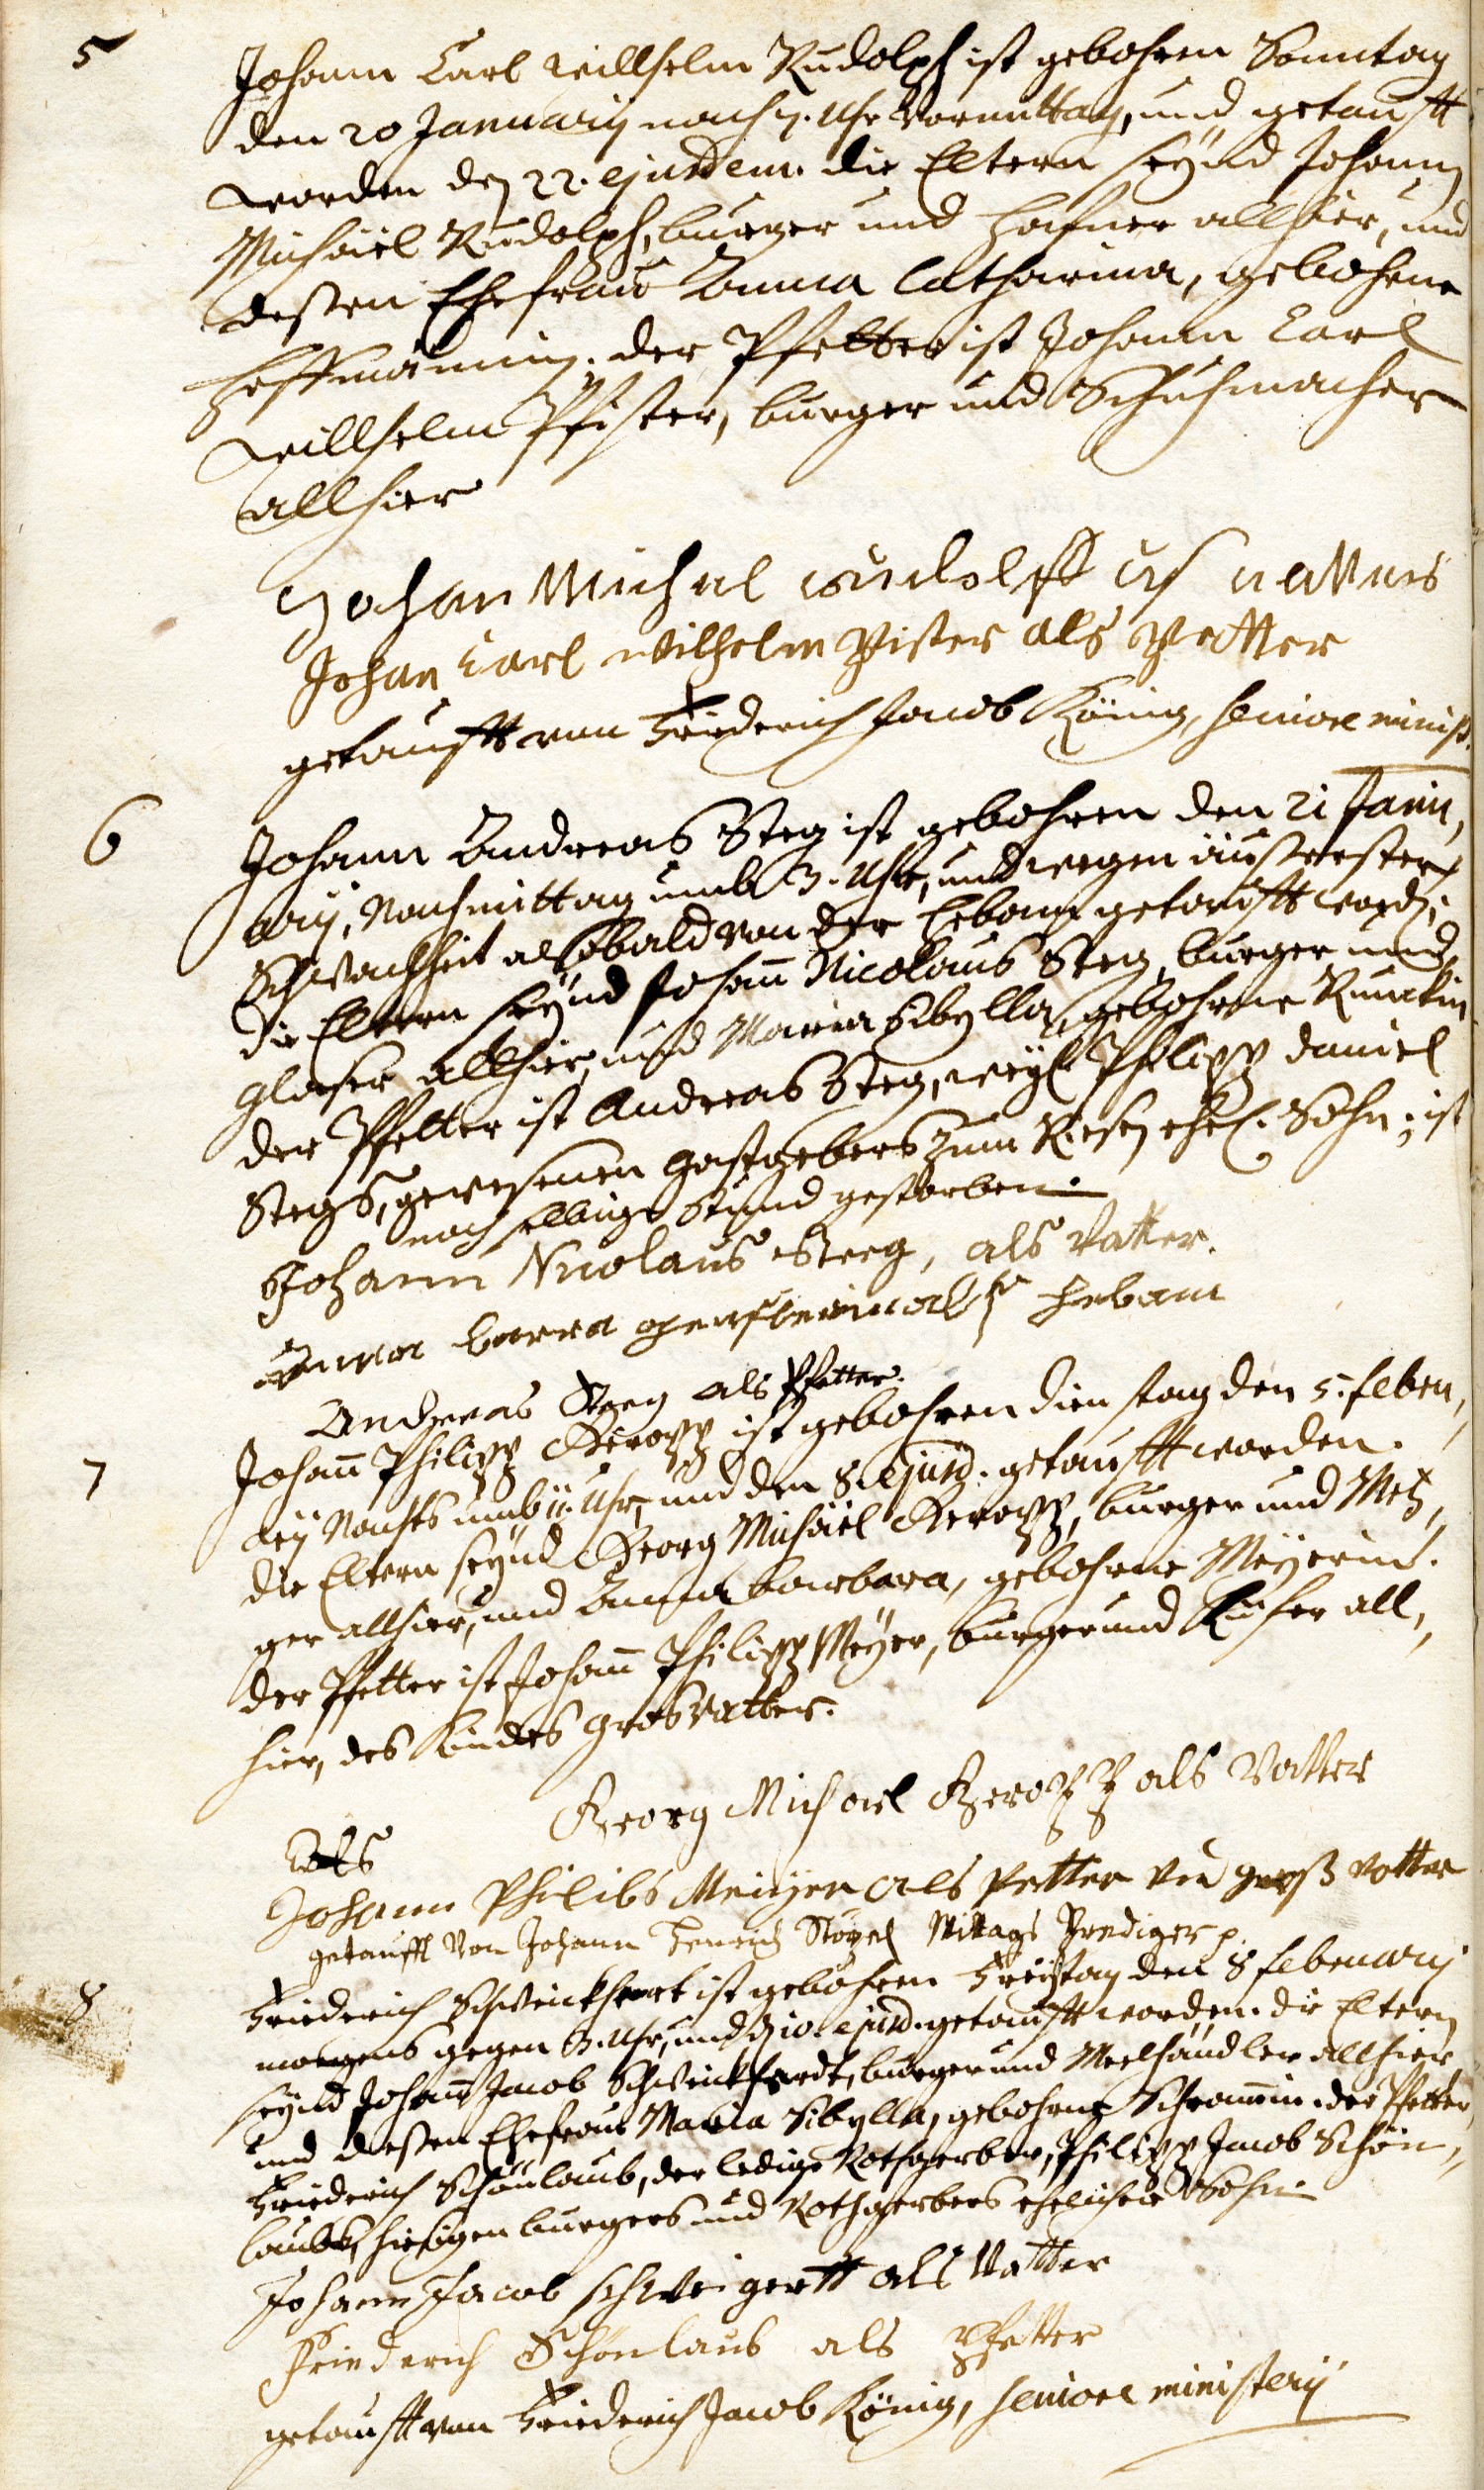 5
Johann Carl Willhelm Rudolph ist gebohren Sonntag
den 20 Januarij nach 7. Uhr Vormittag, und getaufft
worden den 22. ejusdem. die Eltern seynd Johann
Michäel Rudolph, burger und Hafner allhier, und
dessen Ehefrau Anna Catharina, gebohrene
Hoffmännin. der Pfetter ist Johann Carl
Willhelm Pfister, burger und Schuhmacher
allhier
Johan Michel Rudolff als
Johan Carl Wilhelm Pister als Petter
getaufft von Friederich Jacob König, seniore minist.
6
Johann Andreas Steg ist gebohren den 21 Janu,
arij, Nachmittag umb 3. Uhr, und wegen äusserster
Schwachheit alsobald von der Hebam getaufft word;
die Eltern seynd Johann Nicolaus Steg, burger und
glaser allhier, und Maria Sibylla, gebohrne Runckin
der Pfetter ist Andreas Steg, weyl. Philipp Daniel
Stegs, gewesenen Gastgebers zum Riesen ehel. Sohn; ist
noch selbige Stund gestorben.
Johann Nicolaus Steeg, als Vatter.
Anna barra als hebam
Andreas Steeg als Pfetter.
7
Johann Philipp Kropp ist gebohren dienstag den 5. febru,
arij Nachts umb 11. Uhr, und den 8. ejusd. getaufft worden.
die Eltern seynd Georg Michäel Kropp, burger und Metz,
ger allhier, und Anna barbara, gebohrne Meyerin.
der Pfetter ist Johann Philipp Meyer, burger und Kiefer all,
hier, des Kindes grosvatter.
Georg Michael Kropp als Vatter
als
Johann Philibs Meiyer als Petter und groß vatter
getaufft Von Johann Henrich Mittags Prediger p.
8
Friederich Schweickhart ist gebohren Freystag den 8 februarij
morgens gegen 3. Uhr, und d. 10. ejusd. getaufft worden. die Eltern
seynd Johann Jacob Schweickhardt, burger und Meelhändler allhier,
und dessen Ehefrau Maria Sibylla, gebohrne Schrammin. der Pfetter,
Friederich Schönlaub, der ledige Rothgerber, Philipp Jacob Schön,,
laubs, hiesigen burgers und Rothgerbers ehelicher Sohn.
Johann Jacob schweigertt als Vatter
Friederich Schönlaub als Pfetter
getaufft von Friederich Jacob König, seniore ministerij